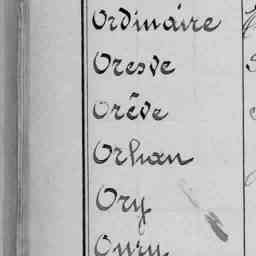 Ordinaire
Oresve
Orêve
Orhan
Ory
Oury